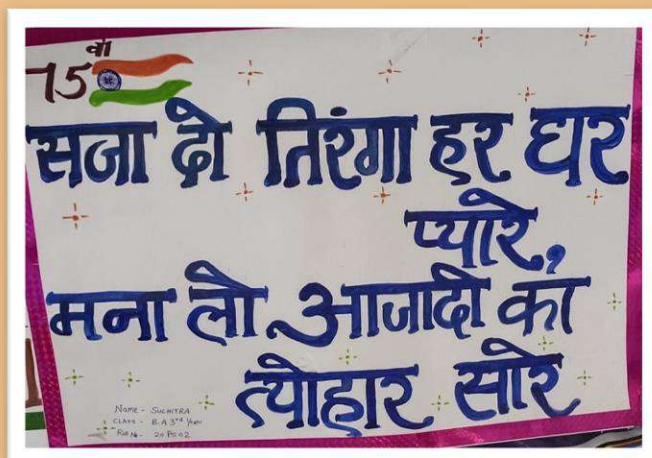 75वां
सजा दो तिरंगा हर घर
प्यारे,
मना लो आजादी का
त्योहार सारे
Name - SUCHITRA
CLASS - B.A 3rd Year
Roll No - 20PS02